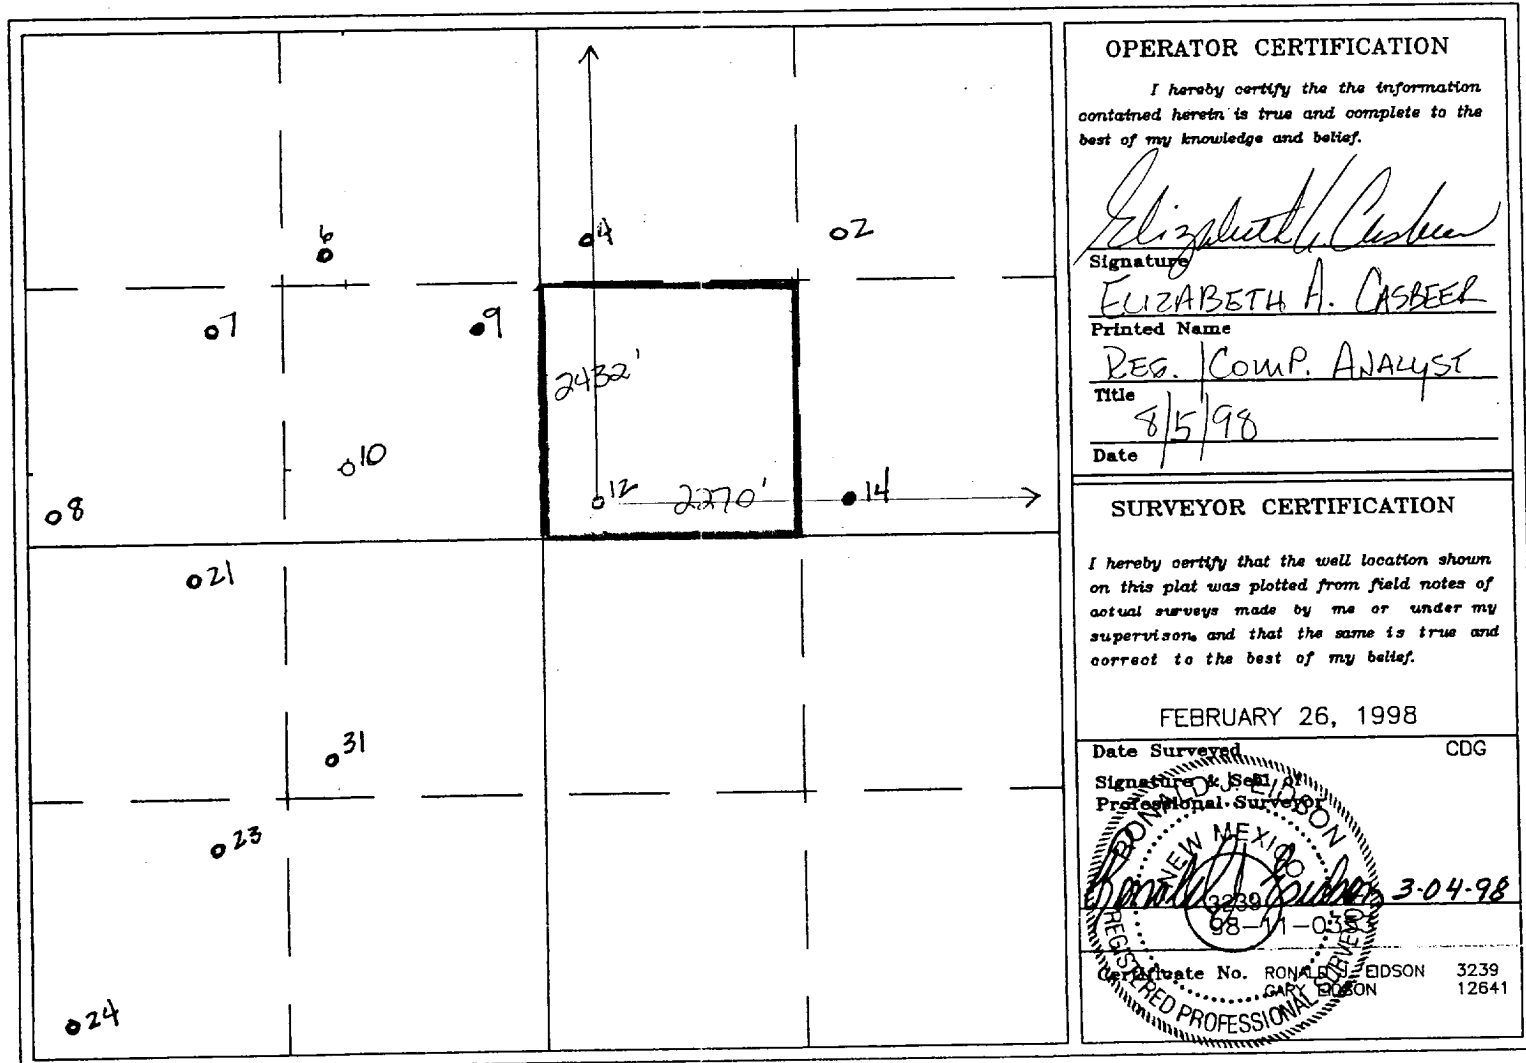 6
4
2
7
9
2432'
10
12
2270'
14
8
21
31
23
24
OPERATOR CERTIFICATION
I hereby certify the the information
contained herein is true and complete to the
best of my knowledge and belief.
Elizabeth A. Casbeer
Signature
ELIZABETH A. CASBEER
Printed Name
REG. / COMP. ANALYST
Title
8/5/98
Date
SURVEYOR CERTIFICATION
I hereby certify that the well location shown
on this plat was plotted from field notes of
actual surveys made by me or under my
supervison, and that the same is true and
correct to the best of my belief.
FEBRUARY 26, 1998
Date Surveyed CDG
Signature & Seal of
Professional Surveyor
RONALD J. EIDSON
NEW MEXICO
3239
REGISTERED PROFESSIONAL SURVEYOR
Ronald J Eidson 3-04-98
Certificate No. RONALD J. EIDSON 3239
GARY EIDSON 12641